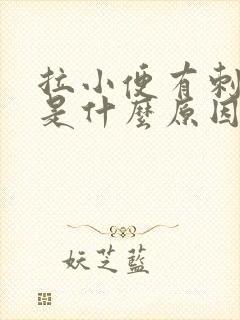 拉小便有刺
是什麼原因
妖芝藍